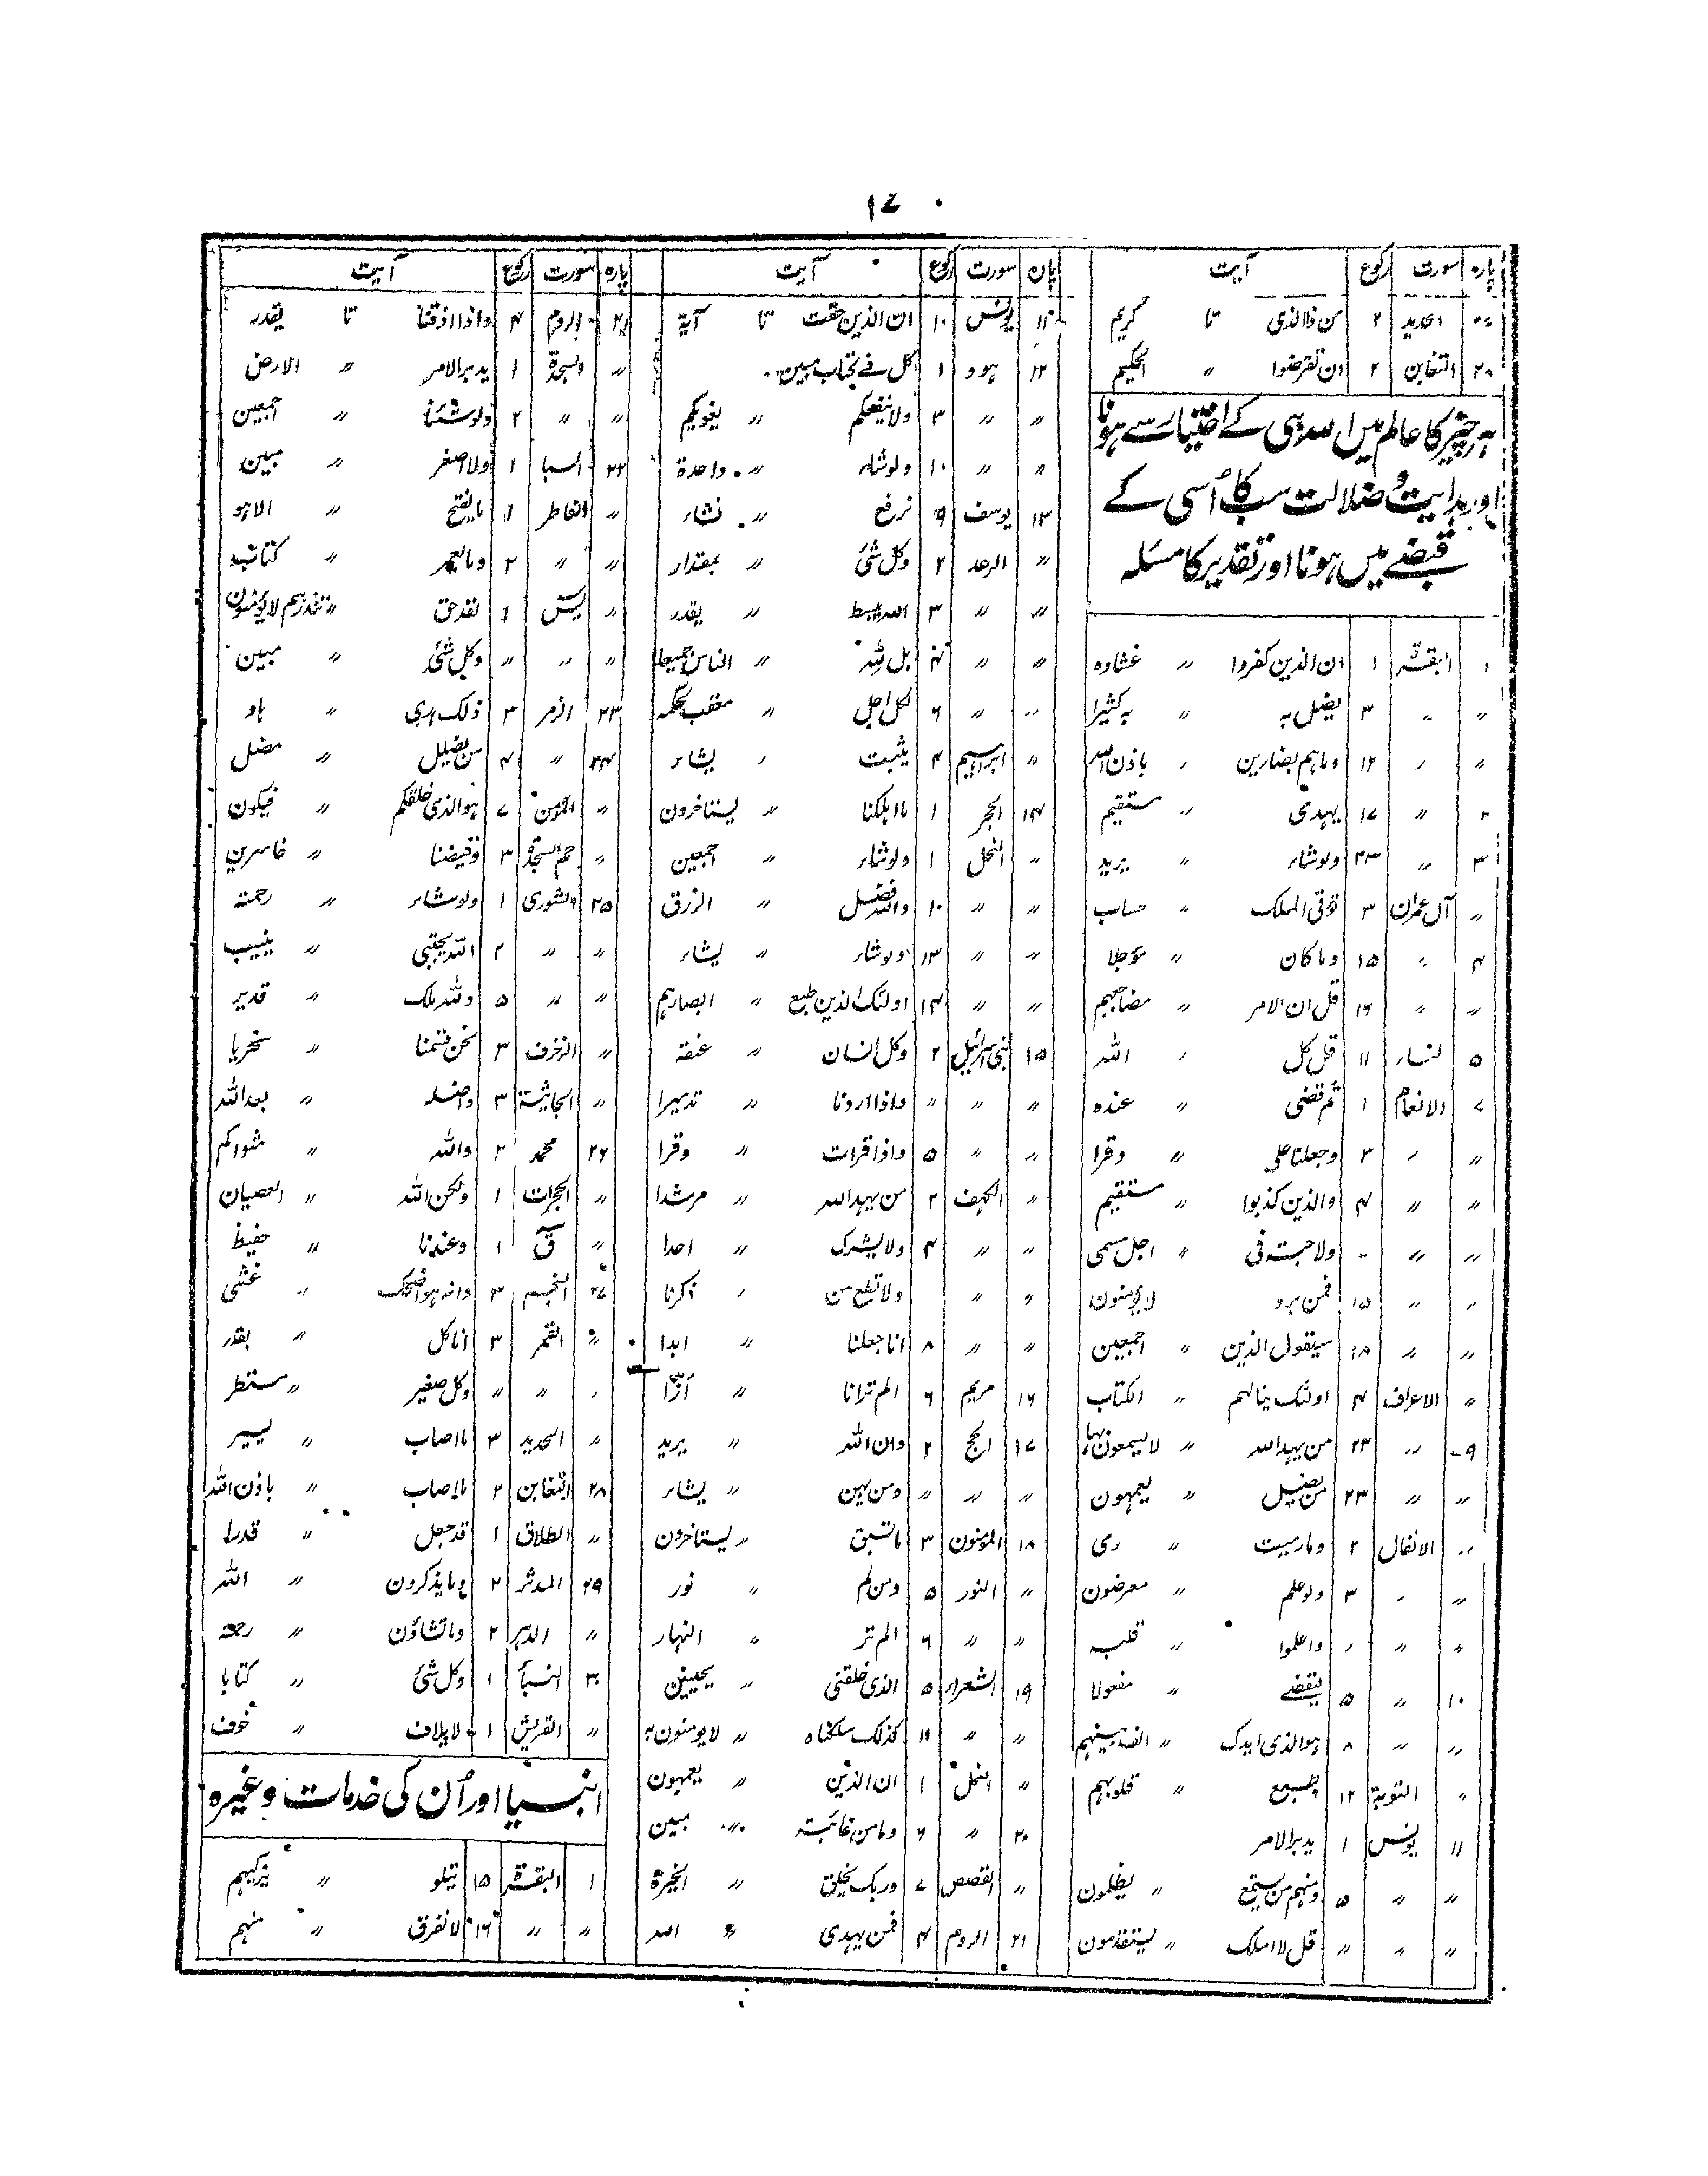 ۱۷
پارہ سورت رکوع آیت
۲۷ الحدید ۲ من ذا الذی تا کریم
۲۸ التغابن ۲ ان تقرضوا 〃 الحکیم
ہر چیز کا عالم میں اللہ ہی کے اختیار سے ہونا
اور ہدایت و ضلالت سب کا اُسی کے
قبضے میں ہونا اور تقدیر کا مسئلہ
۱ البقرۃ ۱ ان الذین کفروا 〃 غشاوہ
〃 〃 ۳ یضل بہ 〃 بہ کثیرا
〃 〃 ۱۲ وماہم بضارین 〃 باذن اللہ
۲ 〃 ۱۷ یہدی 〃 مستقیم
۳ 〃 ۳۳ ولوشاء 〃 یرید
〃 آل عمران ۳ تؤتی الملک 〃 حساب
۴ 〃 ۱۵ وما کان 〃 مؤجلا
〃 〃 ۱۶ قل ان الامر 〃 مضاجعہم
۵ النساء ۱۱ قل کل 〃 اللہ
۷ الانعام ۱ ثم قضی 〃 عندہ
〃 〃 ۳ وجعلنا علی 〃 وقرا
〃 〃 ۴ والذین کذبوا 〃 مستقیم
〃 〃 〃 ولاحبتہ فی 〃 اجل مسمی
〃 〃 ۱۵ فمن یرد لایؤمنون
〃 〃 ۱۸ سیقول الذین 〃 اجمعین
〃 الاعراف ۴ اولئک ینالہم 〃 الکتاب
۹ 〃 ۲۳ من یہد اللہ 〃 لایسمعون بہا
〃 〃 ۲۳ من یضلل 〃 یعمہون
〃 الانفال ۲ ومارمیت 〃 رمی
〃 〃 ۳ ولوعلم 〃 معرضون
〃 〃 〃 واعلموا 〃 قلبہ
۱۰ 〃 ۵ لیقضے 〃 مفعولا
〃 〃 ۸ ہوالذی ایدک 〃 الف بینہم
〃 التوبۃ ۱۲ 〃 قلوبہم
۱۱ یونس ۱ یدبر الامر
〃 〃 ۵ ومنہم من یستمع 〃 یظلمون
〃 〃 〃 قل لا املک 〃 یستقدمون
پارہ سورت رکوع آیت
۱۱ یونس ۱۰ ان الذین حقت تا آیۃ
۱۲ ہود ۱ کل فے کتاب مبین
〃 〃 ۳ ولا ینفعکم 〃 یغویکم
〃 〃 ۱۰ ولوشاء 〃 واحدۃ
۱۳ یوسف ۹ نرفع 〃 نشاء
〃 الرعد ۲ وکل شئ 〃 بمقدار
〃 〃 ۳ اللہ یبسط 〃 یقدر
〃 〃 ۴ بل للہ 〃 الناس جمیعا
〃 〃 ۶ لکل اجل 〃 معقب لحکمہ
〃 ابراہیم ۴ یثبت 〃 یشاء
۱۴ الحجر ۱ ما اہلکنا 〃 یستاخرون
〃 النحل ۱ ولوشاء 〃 اجمعین
〃 〃 ۱۰ واللہ فضل 〃 الرزق
〃 〃 ۱۳ ولوشاء 〃 یشاء
〃 〃 ۱۴ اولئک الذین طبع 〃 ابصارہم
۱۵ بنی اسرائیل ۲ وکل انسان 〃 عنقہ
〃 〃 〃 واذا اردنا 〃 تدمیرا
〃 〃 ۵ واذا قرات 〃 وقرا
〃 الکہف ۲ من یہد اللہ 〃 مرشدا
〃 〃 ۴ ولا یشرک 〃 احدا
〃 〃 ولا تطع من 〃 ذکرنا
〃 〃 ۸ انا جعلنا 〃 ابدا
۱۶ مریم ۶ الم تر انا 〃 ازّا
۱۷ الحج ۲ وان اللہ 〃 یرید
〃 〃 〃 ومن یہن 〃 یشاء
۱۸ المؤمنون ۳ ماتسبق 〃 یستاخرون
〃 النور ۵ ومن لم 〃 نور
〃 〃 ۶ الم تر 〃 النہار
۱۹ الشعراء ۵ الذی خلقنی 〃 یحیین
〃 〃 ۱۱ کذلک سلکناہ 〃 لا یومنون بہ
〃 النحل ۱ ان الذین 〃 یعمہون
۲۰ 〃 ۶ وما من غائبتہ 〃 مبین
〃 القصص ۷ وربک یخلق 〃 الخیرۃ
۲۱ الروم ۴ فمن یہدی 〃 اللہ
پارہ سورت رکوع آیت
۲۱ الروم ۴ واذا اذقنا تا یقدر
〃 السجدۃ ۱ یدبر الامر 〃 الارض
〃 〃 ۲ ولوشئنا 〃 اجمعین
۲۲ السبا ۱ ولا اصغر 〃 مبین
〃 الفاطر ۱ ما یفتح 〃 الا ہو
〃 〃 ۲ وما یعمر 〃 کتاب
〃 یٰس ۱ لقد حق 〃 تنذرہم لایؤمنون
〃 〃 〃 وکل شئ 〃 مبین
۲۳ الزمر ۳ ذلک ہدی 〃 ہاد
۲۴ 〃 ۴ من یضلل 〃 مضل
〃 المؤمن ۷ ہو الذی خلقکم 〃 فیکون
〃 حم السجدۃ ۳ وقیضنا 〃 خاسرین
۲۵ الشوری ۱ ولوشاء 〃 رحمتہ
〃 〃 ۲ اللہ یجتبی 〃 ینیب
〃 〃 ۵ وللہ ملک 〃 قدیر
〃 الزخرف ۳ نحن قسمنا 〃 سخریا
〃 الجاثیۃ ۳ واضلہ 〃 بعد اللہ
۲۶ محمد ۲ واللہ 〃 مثواکم
〃 الحجرات ۱ ولکن اللہ 〃 العصیان
〃 ق ۱ وعندنا 〃 حفیظ
۲۷ النجم ۳ وانہ ہو اضحک 〃 غشی
〃 القمر ۳ انا کل 〃 بقدر
〃 〃 〃 وکل صغیر 〃 مستطر
〃 الحدید ۳ ما اصاب 〃 یسیر
۲۸ التغابن ۲ ما اصاب 〃 باذن اللہ
〃 الطلاق ۱ قد جعل 〃 قدرا
۲۹ المدثر ۲ وما یذکرون 〃 اللہ
〃 الدہر ۲ وما تشاؤن 〃 رحمتہ
۳۰ النبأ ۱ وکل شئ 〃 کتابا
〃 القریش ۱ لایلاف 〃 خوف
انبیا اور اُن کی خدمات وغیرہ
۱ البقرۃ ۱۵ یتلو 〃 یزکیہم
〃 〃 ۱۶ لانفرق 〃 منہم